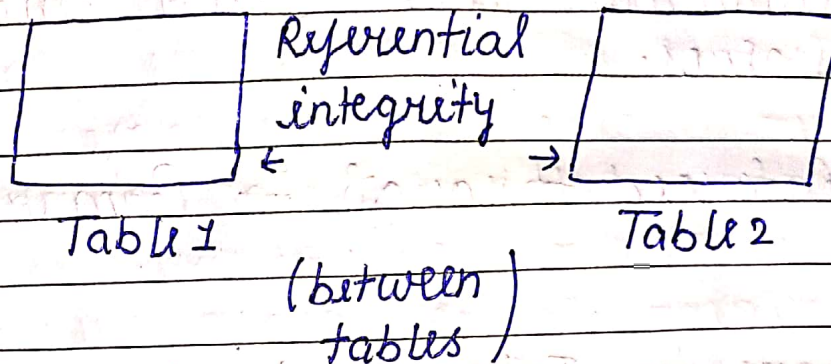 Referential
integrity
← →
Table 1 Table 2
(between
tables)